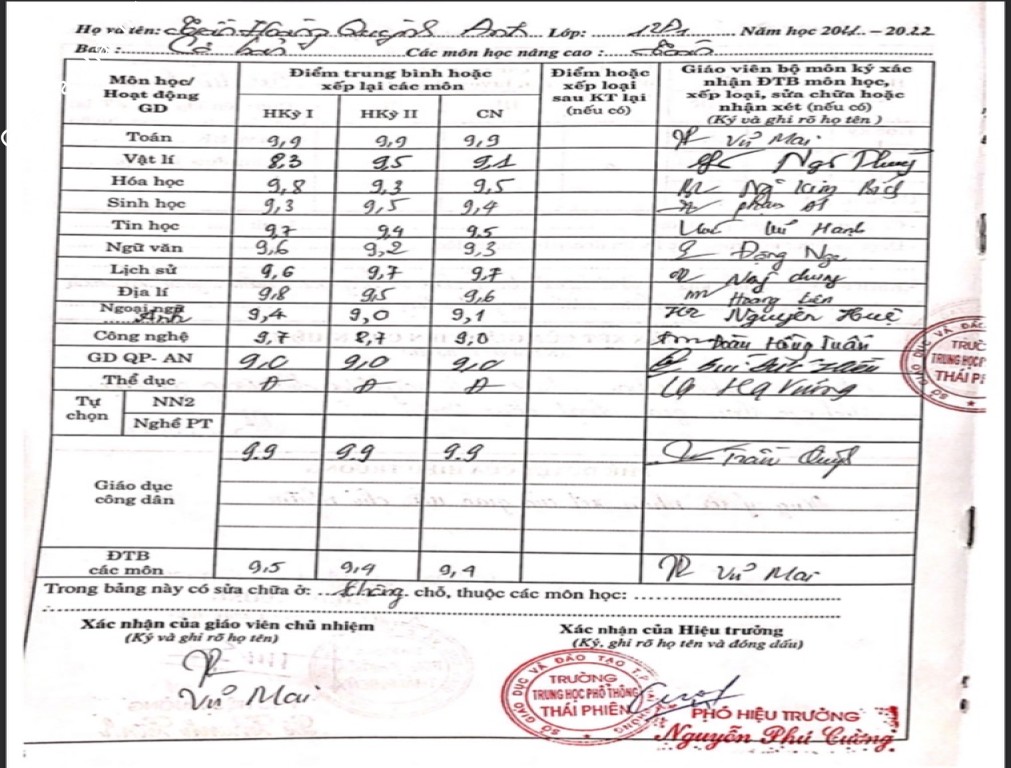 Họ và tên: Trần Hoàng Quỳnh Anh Lớp: 12D1 Năm học 2021 – 2022
Ban: Cơ bản Các môn học nâng cao:
Môn học/ Hoạt động GD Điểm trung bình hoặc xếp lại các môn Điểm hoặc xếp loại sau KT lại (nếu có) Giáo viên bộ môn ký xác nhận ĐTB môn học, xếp loại, sửa chữa hoặc nhận xét (nếu có) (Ký và ghi rõ họ tên )
HKỳ I HKỳ II CN
Toán 9,9 9,9 9,9 Vũ Mai
Vật lí 8.3 9,5 9,1 Ngô
Hóa học 9,8 9,3 9,5 Ngô Kim Bích
Sinh học 9,3 9,5 9,4
Tin học 9,7 9,4 9,5 Hanh
Ngữ văn 9,6 9,2 9,3 Đặng Nga
Lịch sử 9,6 9,7 9,7 dung
Địa lí 9,8 9,5 9,6 Hoàng Liên
Ngoại ngữ Anh 9,4 9,0 9,1 Nguyễn Huệ
Công nghệ 9,7 8,7 9,0 Đoàn Hồng Tuấn
GD QP- AN 9,0 9,0 9,0 Bùi Đức
Thể dục Đ Đ Đ Hạ Vương
Tự chọn NN2
Nghề PT
Giáo dục công dân 9.9 9.9 9.9 Trần
ĐTB các môn 9,5 9,4 9,4 Vũ Mai
Trong bảng này có sửa chữa ở: không chỗ, thuộc các môn học:
Xác nhận của giáo viên chủ nhiệm Xác nhận của Hiệu trưởng
(Ký và ghi rõ họ tên) (Ký, ghi rõ họ tên và đóng dấu)
Vũ Mai
SỞ GIÁO DỤC VÀ ĐÀO TẠO T.P
TRƯỜNG
TRUNG HỌC PHỔ THÔNG
THÁI PHIÊN
PHÓ HIỆU TRƯỞNG
Nguyễn Phú Cường